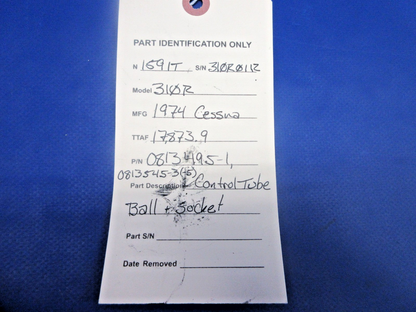 PART IDENTIFICATION ONLY
N 1591T S/N 310R0112
Model 310R
MFG 1974 Cessna
TTAF 17,873.9
P/N 0813495-1,
0813545-3(-5)
Part Description Control Tube
Ball + Socket
Part S/N
Date Removed